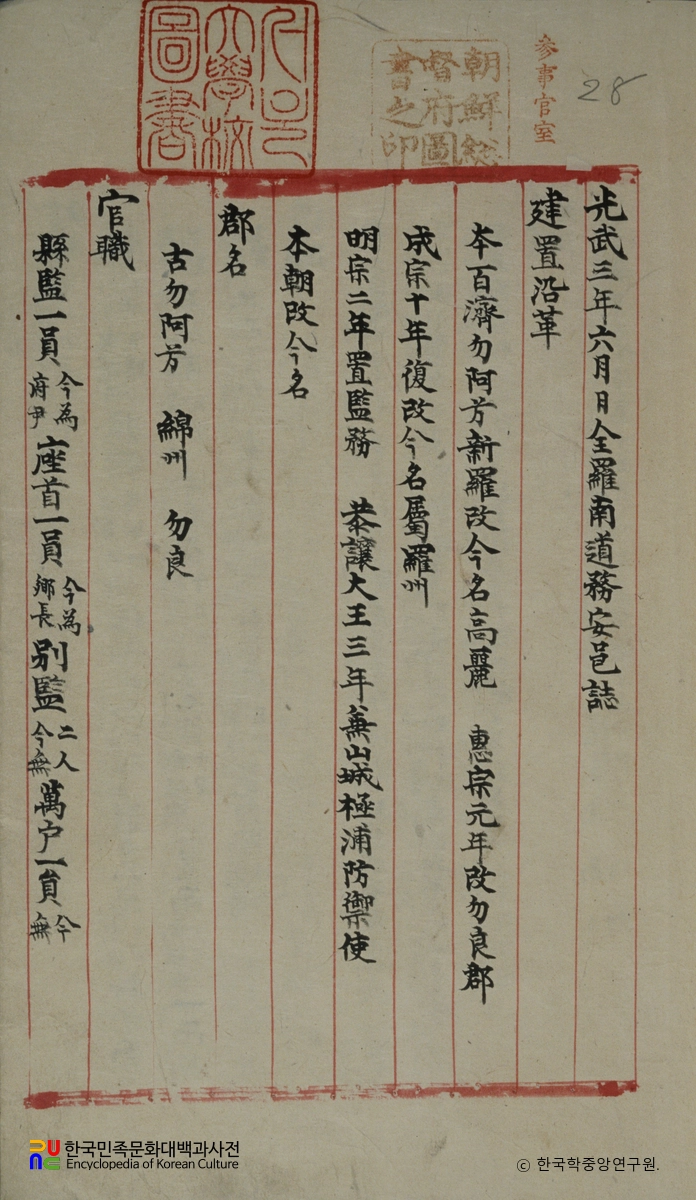 28
參事官室
朝鮮総
督府圖
書之印
大學校
圖書
光武三年六月 日全羅南道務安邑誌
建置沿革
本百濟勿阿兮新羅改今名高麗 惠宗元年改勿良郡
成宗十年復改今名屬羅州
明宗二年置監務 恭讓大王三年兼山城極浦防禦使
本朝改今名
郡名
古勿阿兮 綿州 勿良
官職
縣監一員 今為府尹 座首一員 今為鄉長 別監 二人今無 萬户一員 今無
한국민족문화대백과사전
Encyclopedia of Korean Culture
© 한국학중앙연구원.